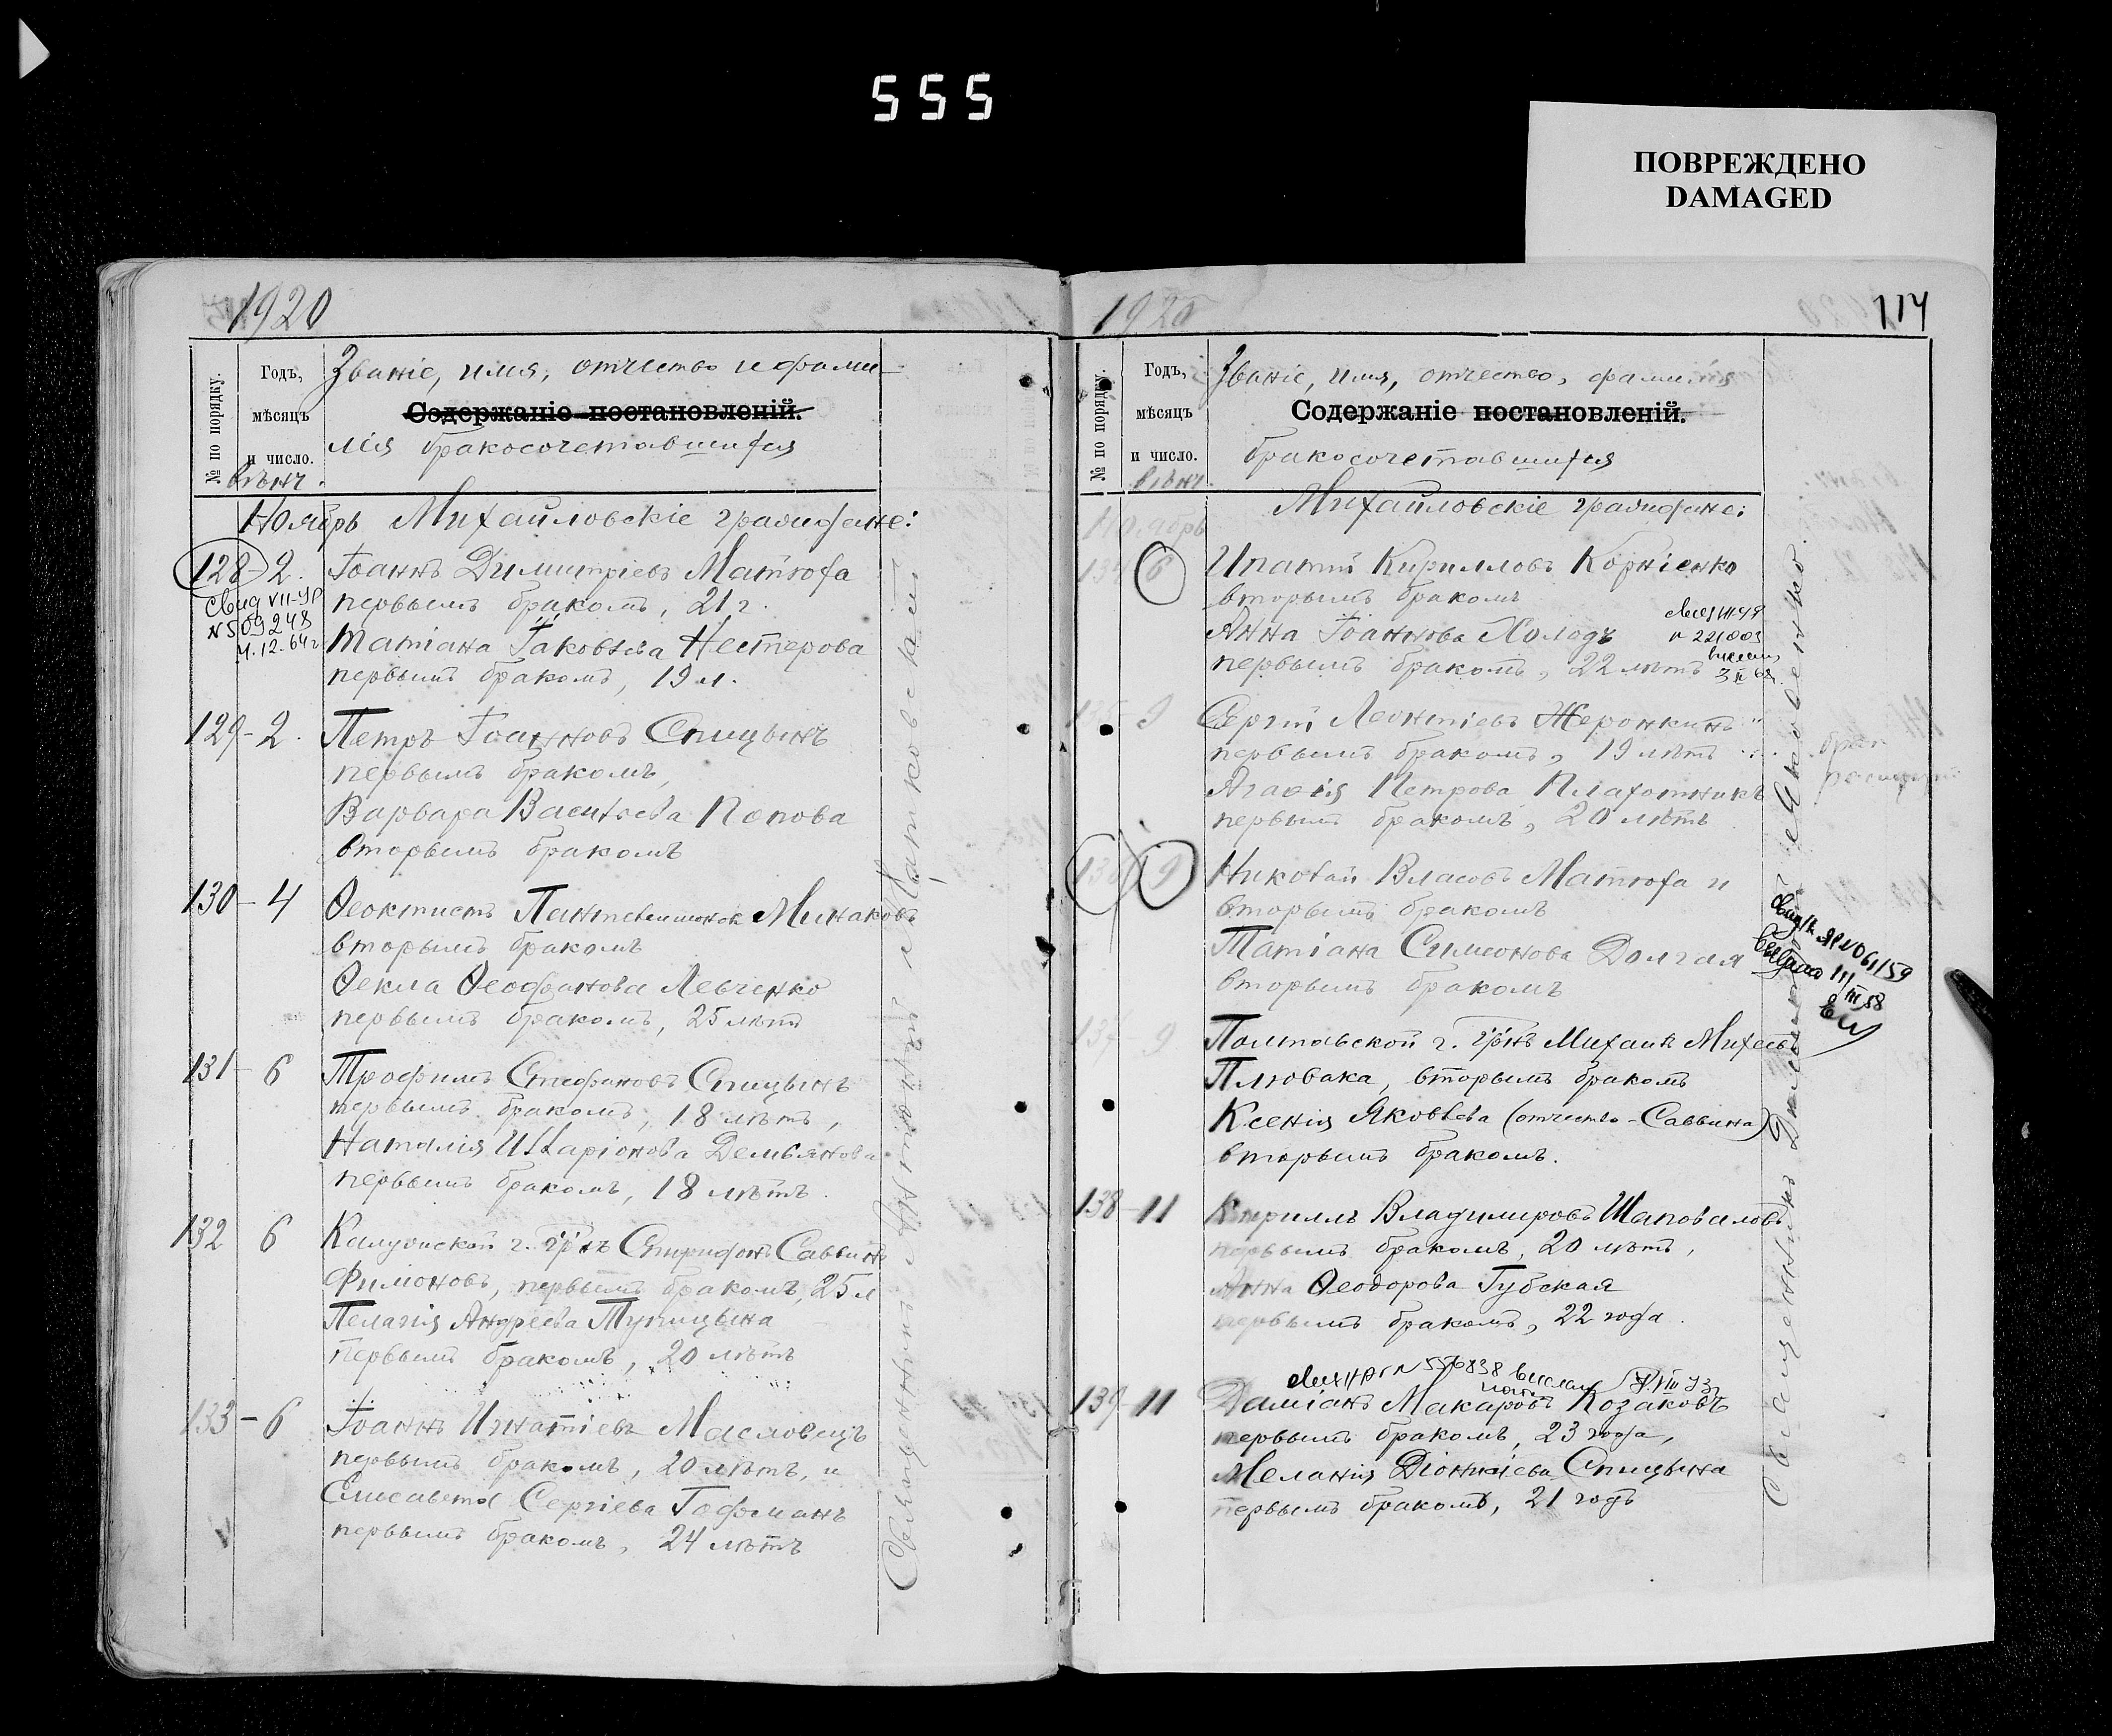 555
ПОВРЕЖДЕНО
DAMAGED
1920
№ по порядку.
Годъ,
мѣсяцъ
и число.
вѣнч.
Званіе, имя, отчество и фами-
Содержаніе постановленій.
лія бракосочетавшихся
Ноябрь Михайловскіе граждане:
128-2. Іоаннъ Димитріевъ Матюха
первымъ бракомъ, 21 г.
Татіана Іаковлева Нестерова
первымъ бракомъ, 19 л.
Свид VII-УР
N 509248
4.12.64г
129-2. Петръ Іоанновъ Спицынъ
первымъ бракомъ,
Варвара Васильева Попова
вторымъ бракомъ
130-4 Ѳеоктистъ Пантелеимонов Минаковъ
вторымъ бракомъ
Ѳекла Ѳеофанова Левченко
первымъ бракомъ, 25 лѣтъ
131-6 Трофимъ Стефановъ Спицынъ
первымъ бракомъ, 18 лѣтъ,
Наталія Иларіонова Демьянова
первымъ бракомъ, 18 лѣтъ.
132 6 Калужской г. гр-нъ Спиридонъ Саввинъ
Филоновъ, первымъ бракомъ, 25 л
Пелагія Андреева Тупицына
первымъ бракомъ, 20 лѣтъ
133-6 Іоаннъ Игнатіевъ Масловецъ
первымъ бракомъ, 20 лѣтъ, и
Елисавета Сергіева Гофманъ
первымъ бракомъ, 24 лѣтъ
Священникъ Антоній
1920
114
№ по порядку.
Годъ,
мѣсяцъ
и число.
вѣнч.
Званіе, имя, отчество, фамилія
Содержаніе постановленій.
бракосочетавшихся
Ноябрь
Михайловскіе граждане:
134 6 Ипатій Кирилловъ Корніенко
вторымъ бракомъ
Анна Іоаннова Холодъ
первымъ бракомъ, 22 лѣтъ
135 9 Сергій Леонтіевъ Жеронкинъ
первымъ бракомъ, 19 лѣтъ
Агафія Петрова Плахотникъ
первымъ бракомъ, 20 лѣтъ
брак
136 9 Николай Власовъ Матюха и
вторымъ бракомъ
Татіана Симеонова Долгая
вторымъ бракомъ
137 9 Полтавской г. гр-нъ Михаилъ Михеевъ
Плювака, вторымъ бракомъ
Ксенія Яковлева (отчество - Саввина)
вторымъ бракомъ.
138-11 Кириллъ Владимировъ Шаповаловъ
первымъ бракомъ, 20 лѣтъ,
Анна Ѳеодорова Губская
первымъ бракомъ, 22 года.
139-11 Даміанъ Макаровъ Козаковъ
первымъ бракомъ, 23 года,
Меланія Діонисіева Спицына
первымъ бракомъ, 21 годъ
Священникъ Димитрій